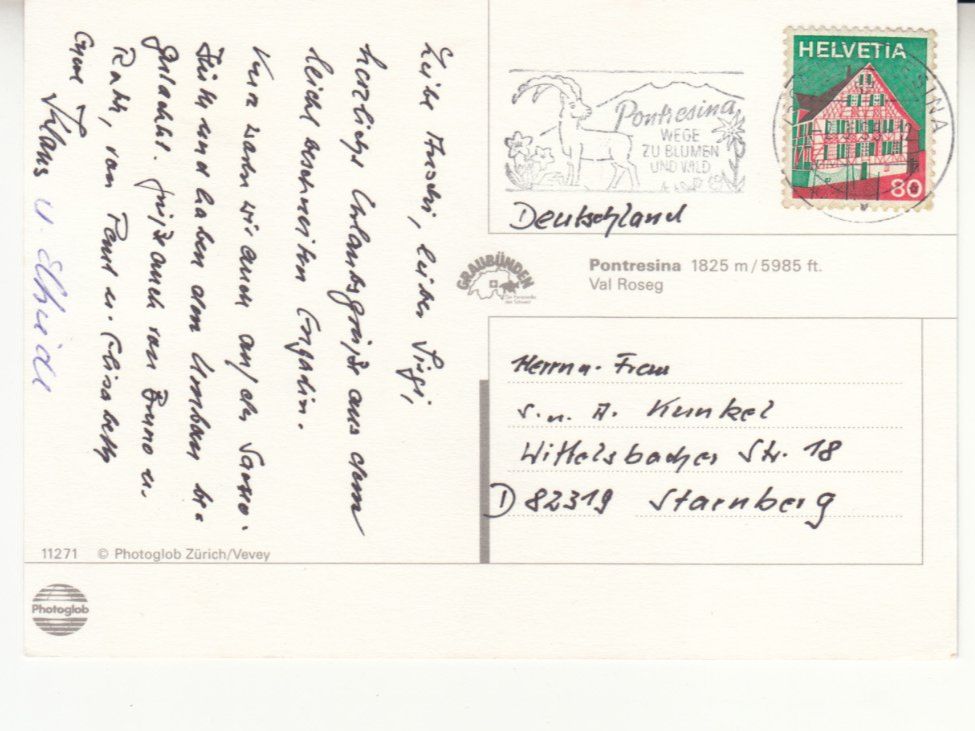 Liebe Anschi, lieber Sigi,
herzliche Urlaubsgrüße aus dem
leicht beschneiten Engadin.
Kurz waren wir auch auf der
und haben den Umbau be-
gutachtet. Grüße auch von Bruno u.
Ruth, von Paul u. Elisabeth
Eure Klaus u. Elfriede
HELVETIA
80
Pontresina
WEGE
ZU BLUMEN
UND WALD
SINA
Deutschland
GRAUBÜNDEN
Pontresina 1825 m/5985 ft.
Val Roseg
Herrn u. Frau
S. u. A. Kunkel
Wittelsbacher Str. 18
D 82319 Starnberg
11271 © Photoglob Zürich/Vevey
Photoglob